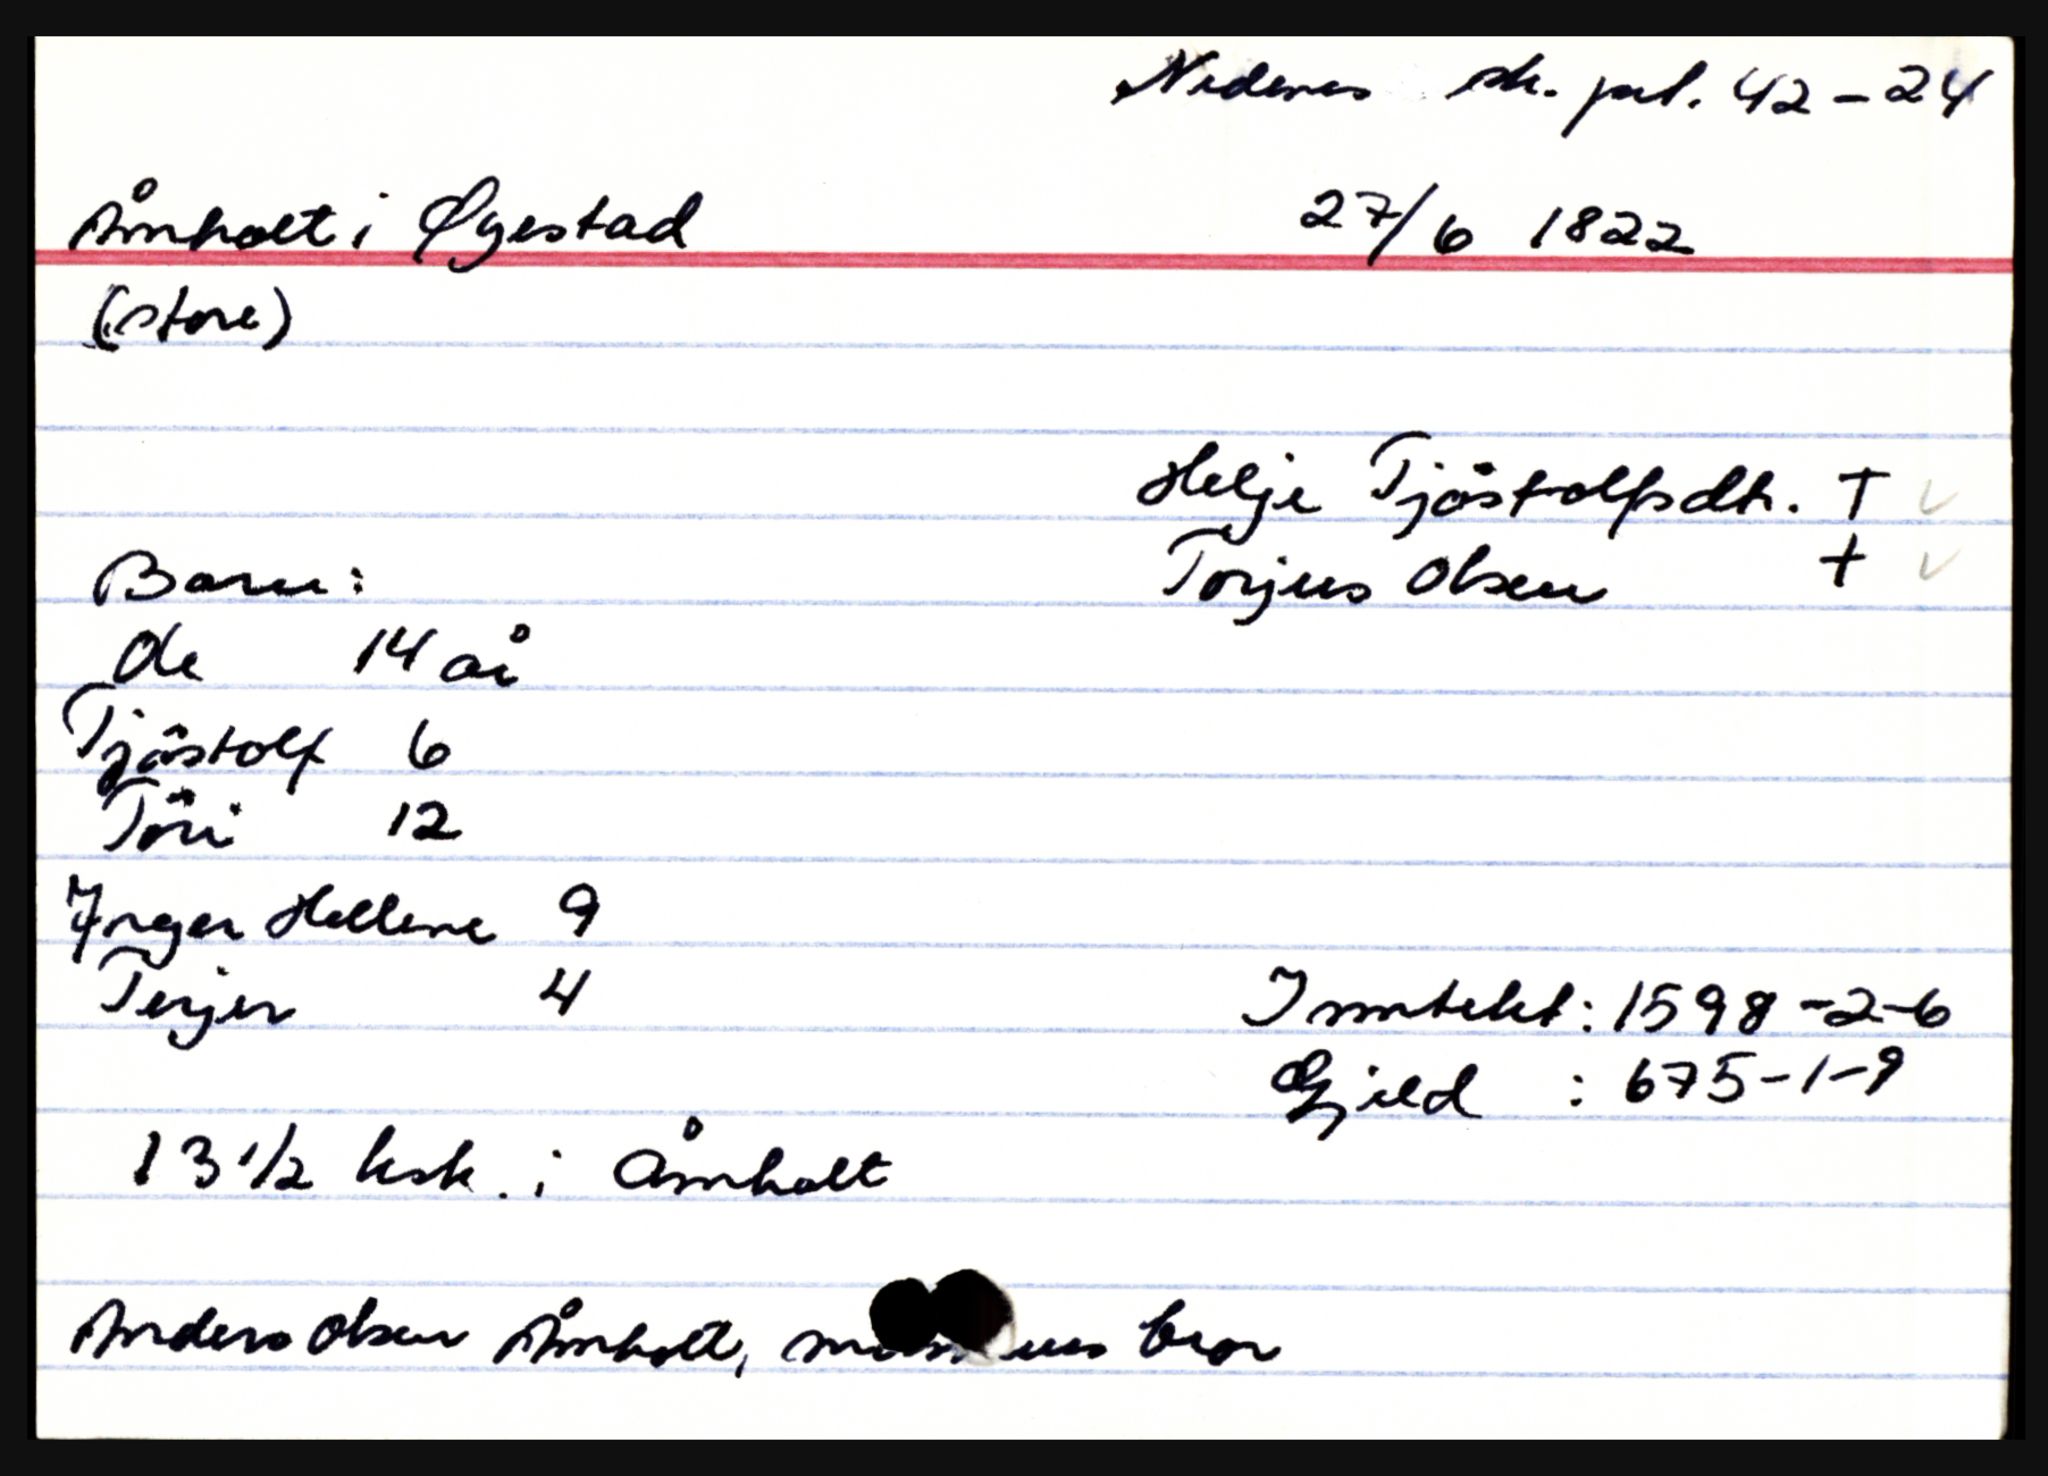 Nedenes sk. prl. 42-24
Åmholt i Øyestad 27/6 1822
(store)
Helje Tjöstolfsdtr. †
Torjus Olsen †
Barn:
Ole 14 år
Tjöstolf 6
Töri 12
Inger Hellene 9
Terjer 4
Inntekt: 1598-2-6
Gjeld : 675-1-9
13 1/2 ksk. i Åmholt
Anders Olsen Åmholt, bror